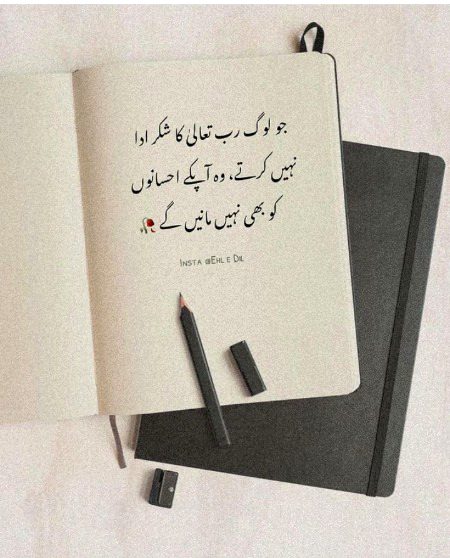 جو لوگ رب تعالیٰ کا شکر ادا
نہیں کرتے، وہ آپکے احسانوں
کو بھی نہیں مانیں گے 🥀
INSTA @EHL E DIL